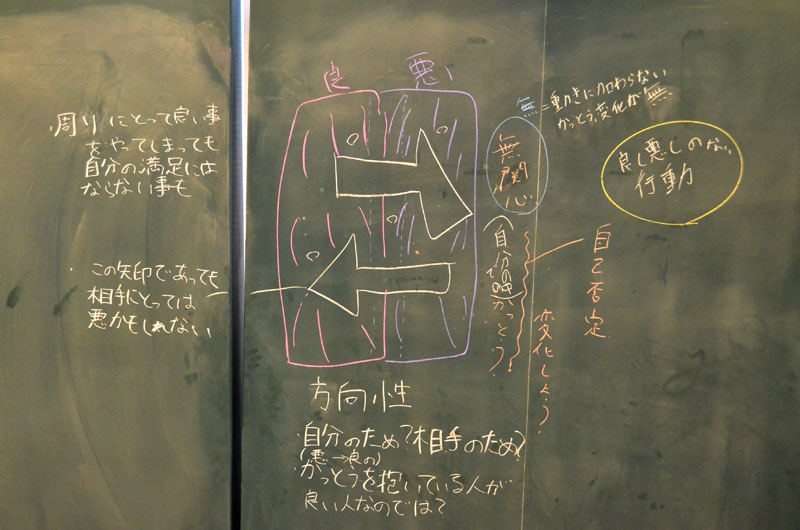 周りにとって良い事
をやってしまっても
自分の満足には
ならない事も
この矢印であっても
相手にとっては
悪かもしれない
良
悪
無関心
無=動きに加わらない
かっとう、変化が無
良し悪しのない
行動
かっとう
自己否定
変化しよう
方向性
自分のため?相手のため?
(悪→良の)
かっとうを抱いている人が
良い人なのでは?